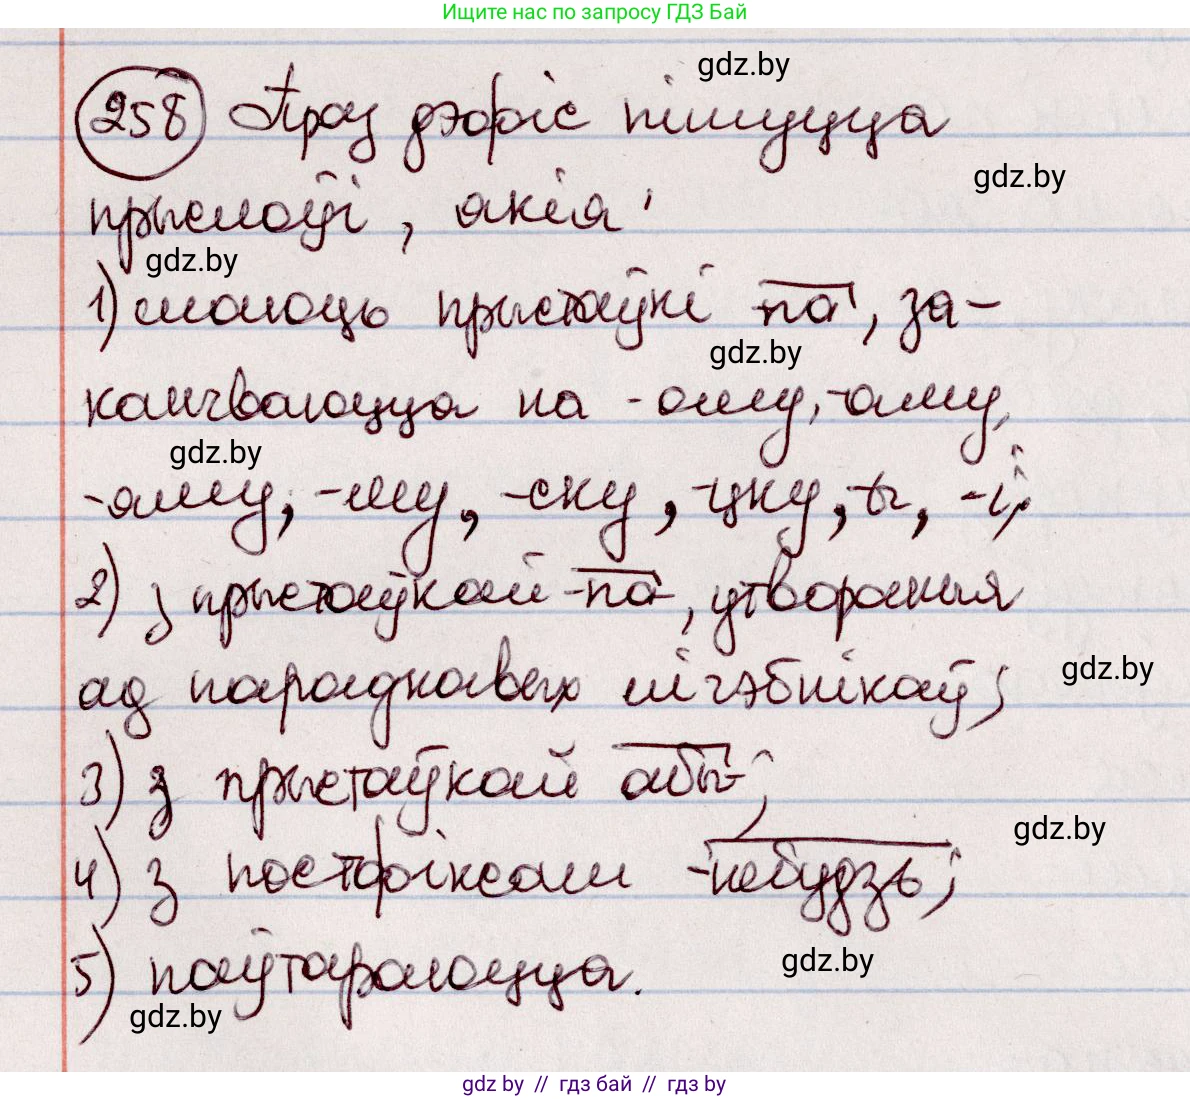 Ищите нас по запросу ГДЗ Бай
gdz.by
258 Праз дэфіс пішуцца
gdz.by
прыслоўі, якія:
gdz.by
1) маюць прыстаўкі па, за-
gdz.by
канчваюцца на -ому, -аму,
gdz.by
-яму, -му, -ску, -цку, -ы, -і;
2) з прыстаўкай -па-, утвораныя
ад парадкавых лічэбнікаў;
gdz.by
3) з прыстаўкай абы-;
gdz.by
4) з постфіксам -небудзь;
5) паўтараюцца.
gdz.by
gdz.by
gdz by // гдз бай // гдз by